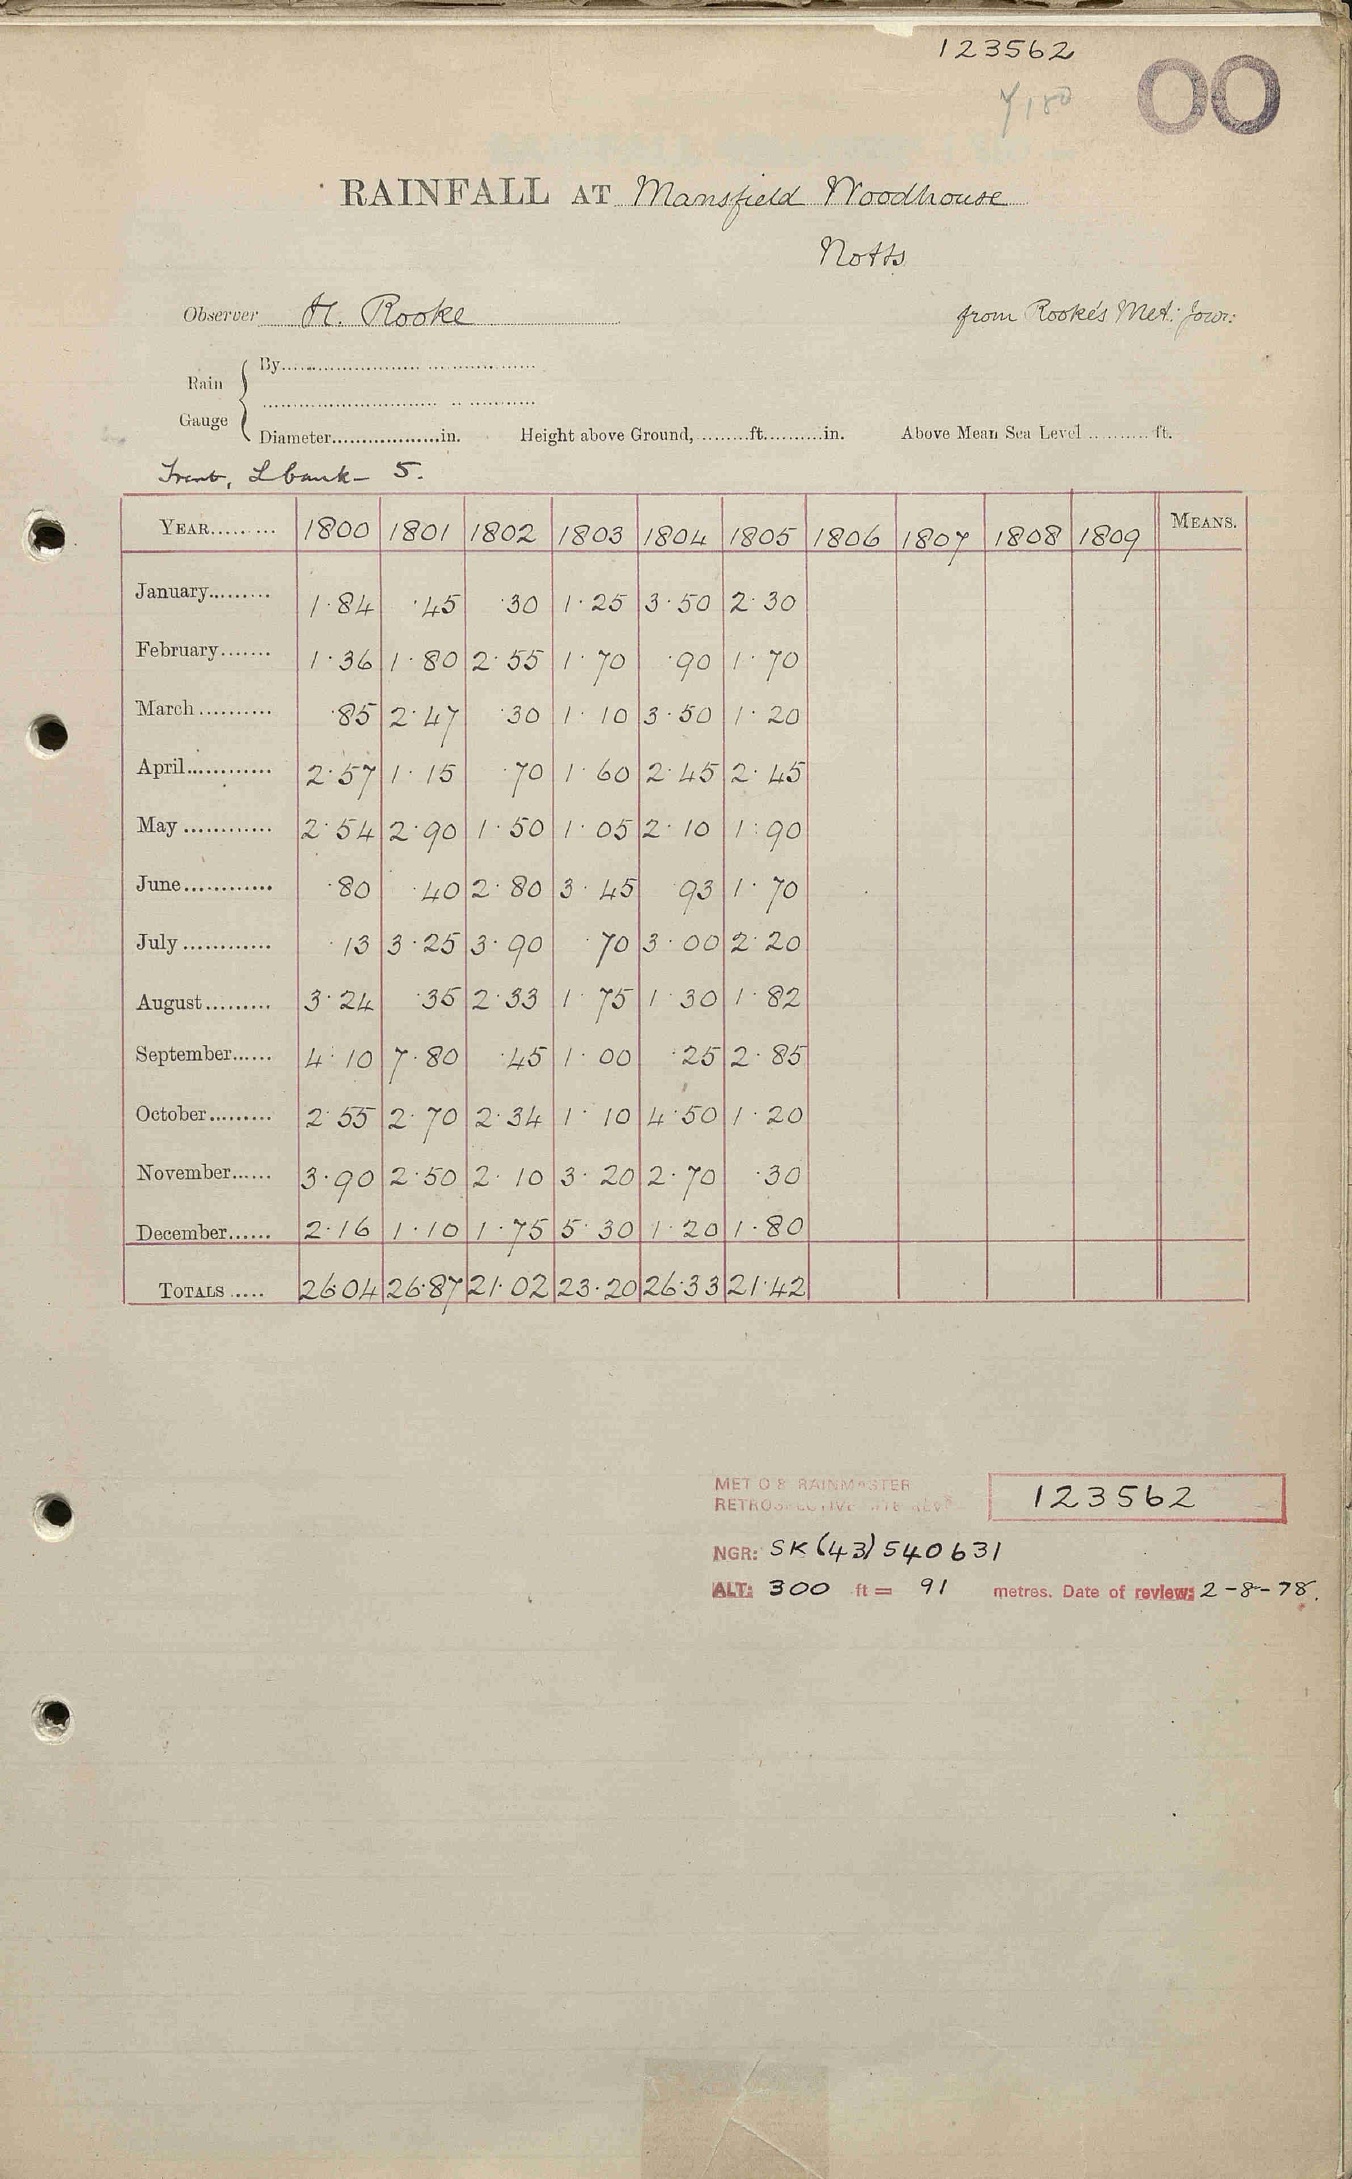 123562
00
RAINFALL AT Mansfield Woodhouse
Notts
Observer H. Rooke
from Rooke's Met: Jour:
Rain Gauge
By
Diameter in. Height above Ground, ft. in. Above Mean Sea Level ft.
Trent, L bank - 5.
YEAR 1800 1801 1802 1803 1804 1805 1806 1807 1808 1809 MEANS.
January 1·84 ·45 ·30 1·25 3·50 2·30
February 1·36 1·80 2·55 1·70 ·90 1·70
March ·85 2·47 ·30 1·10 3·50 1·20
April 2·57 1·15 ·70 1·60 2·45 2·45
May 2·54 2·90 1·50 1·05 2·10 1·90
June ·80 ·40 2·80 3·45 ·93 1·70
July ·13 3·25 3·90 ·70 3·00 2·20
August 3·24 ·35 2·33 1·75 1·30 1·82
September 4·10 7·80 ·45 1·00 ·25 2·85
October 2·55 2·70 2·34 1·10 4·50 1·20
November 3·90 2·50 2·10 3·20 2·70 ·30
December 2·16 1·10 1·75 5·30 1·20 1·80
TOTALS 26·04 26·87 21·02 23·20 26·33 21·42
MET O 8 RAINMASTER
RETROSPECTIVE 123562
NGR: SK (43) 540631
ALT: 300 ft = 91 metres. Date of review: 2-8-78.